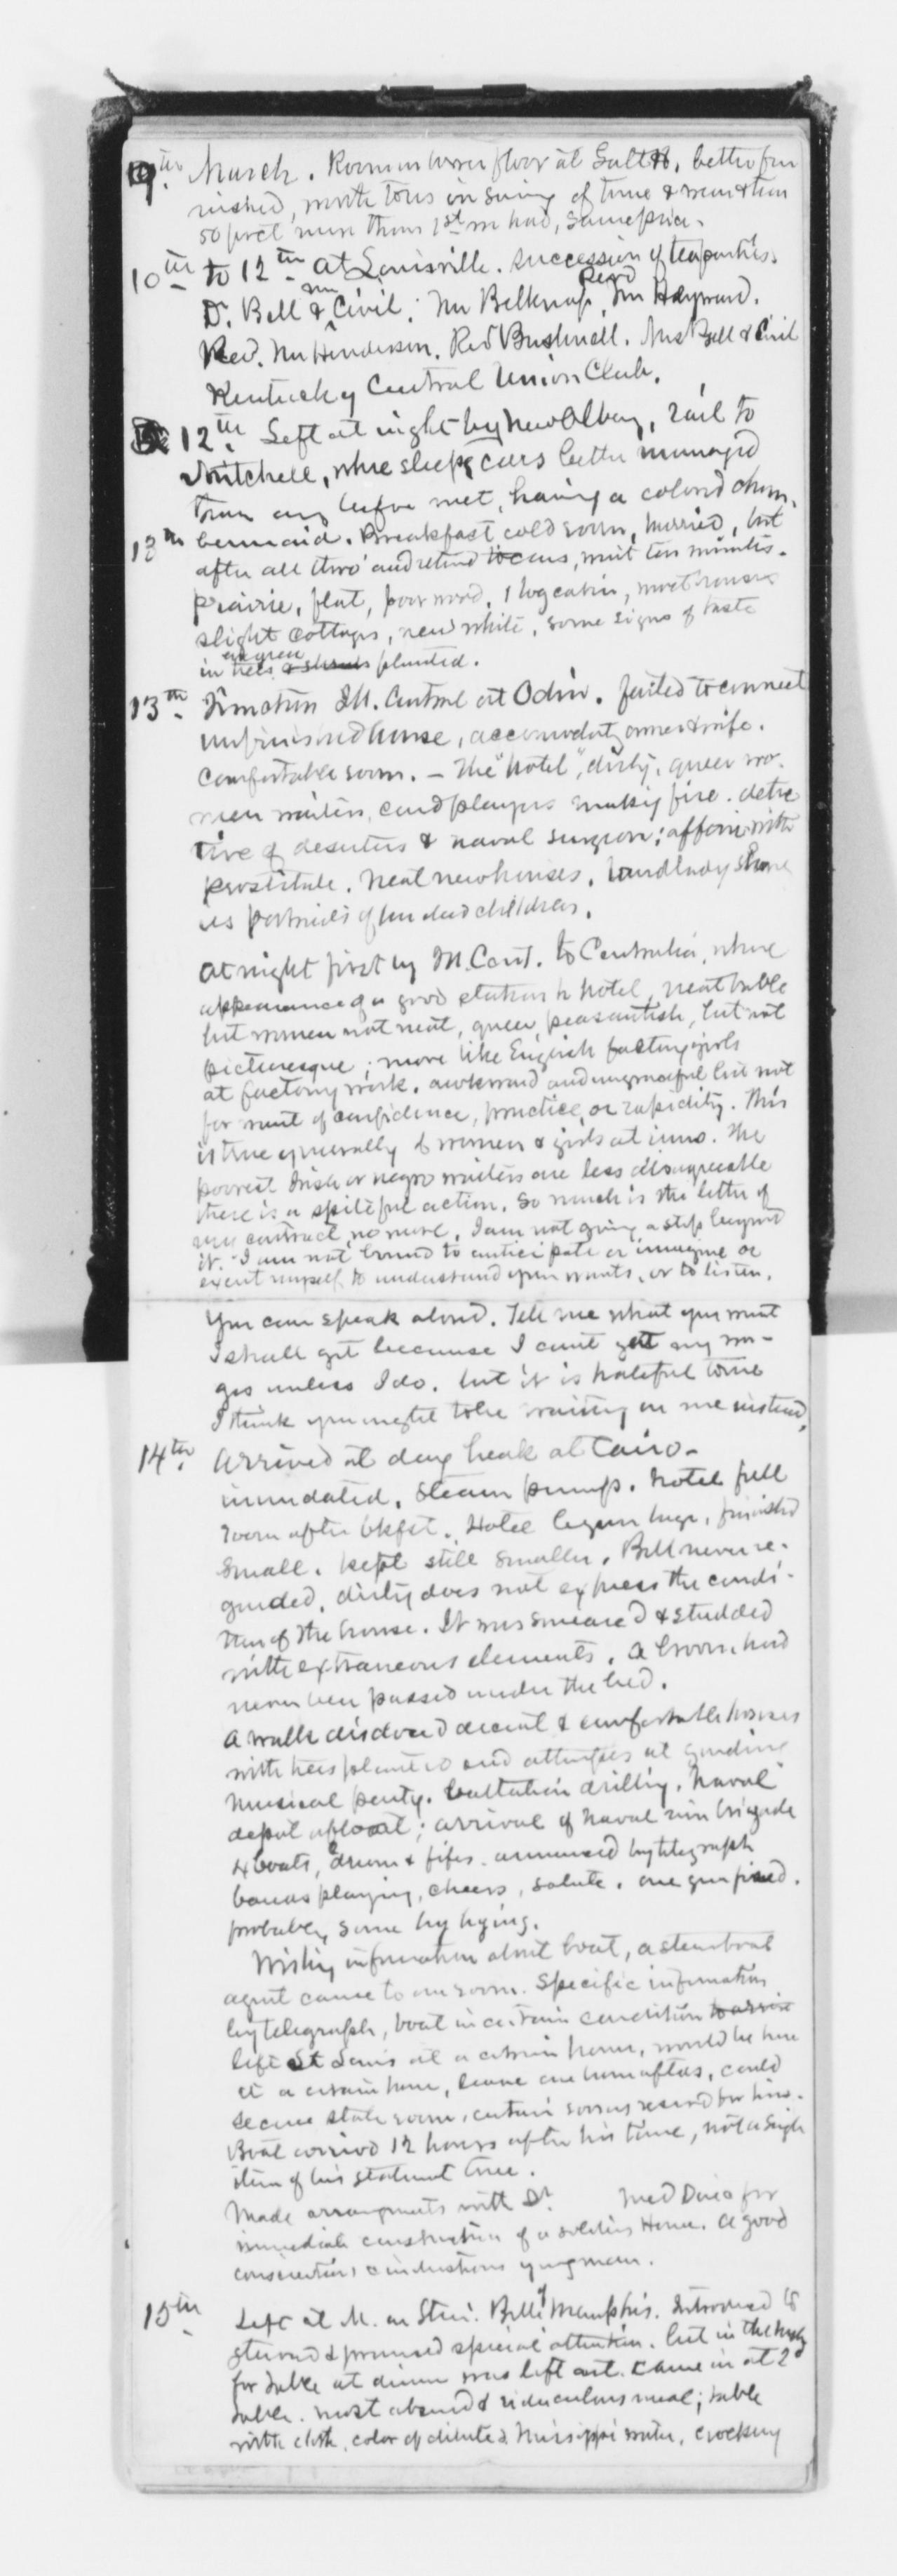 9th. March. Room on lower floor at Galt H, better fur
nished, worth tons in saving of time &
50 pr ct more than 1st we had, same price.
10th to 12th at Louisville. Succession of tea parties.
Dr. Bell & Mr Civil. Mr Belknap, Revd Mr Heywood.
Rev. Mr Henderson. Rev Bushnell. Mrs Bell & Civil
Kentucky Central Union Club.
12th. Left at night by New Albany, rail to
Mitchell, where sleepg cars better managed
than any before met, having a colored cham
13th bermaid. Breakfast cold room, hurried, but
after all thro' and retund to cars, wait ten minutes.
Prairie, flat, poor wood, 1 log cabin, most houses
slight cottages, new white, some signs of taste
in evergreen trees & shrubs planted.
13th. Junction Ill. Central at Odin. failed to connect
unfinished house, accomodatg owner & wife.
Comfortable room. — The "hotel", dirty, queer wo-
men waiters, card players making fire. detec
tive of deserters & naval surgeon; affair with
prostitute. Neat new houses. Landlady shows
us portraits of her dead children.
At night first by Ill. Cent. to Centralia, where
appearance of a good station & hotel, neat table
but women not neat, queer, peasantish, but not
picturesque; more like English factory girls
at factory work. awkward and ungraceful but not
for want of confidence, practice, or rapidity. This
is true generally of women & girls at inns. The
poorest Irish or negro waiters are less disagreeable
there is a spiteful action. So much is the letter of
my contract, no more. I am not going a step beyond
it. I am not bound to anticipate or imagine or
exert myself to understand your wants, or to listen.
You can speak aloud. Tell me what you want
I shall get because I cant get my wa-
ges unless I do. but it is hateful to me
I think you ought to be waiting on me instead.
14th. Arrived at day break at Cairo—
inundated. Steam pumps. Hotel full
room after bkfst. Hotel begun huge, finished
small. kept still smaller. Bell never re-
garded. dirty does not express the condi-
tion of the house. It was smeared & studded
with extraneous elements. A broom had
never been passed under the bed.
A walk disclosed decent & comfortable houses
with trees planted and attempts at gardens
Musical party. battalion drilling. Naval
depot afloat; arrival of Naval ram brigade
4 boats, drum & fifes. announced by telegraph
bands playing, cheers, salute. one gun fired.
probably some hy hying.
Wishing information about boat, a steamboat
agent came to our room. Specific information
by telegraph, boat in certain condition to arrive
left St Louis at a certain hour, would be here
at a certain hour, leave one hour after, could
secure state room, certain rooms reservd for him.
Boat arrived 12 hours after his time, not a single
item of his statement true.
Made arrangements with Dr. Med Direc for
immediate construction of a soldiers Home. A good
conscientious & industrious young man.
15th. Left at M. on Stmr. Belle Memphis. Introduced to
steward & promised special attention. but in the rush
for table at dinner was left out. Came in at 2d
table. most absurd & ridiculous meal; table
with cloth, color of diluted Missippi water, crockery